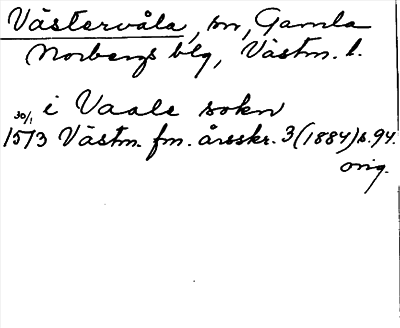 Västervåla, sn, Gamla
Norbergs blg, Västm. l.
30/1 i Vaale sokn
1513 Västm. fm. årsskr. 3 (1884) s. 94.
orig.